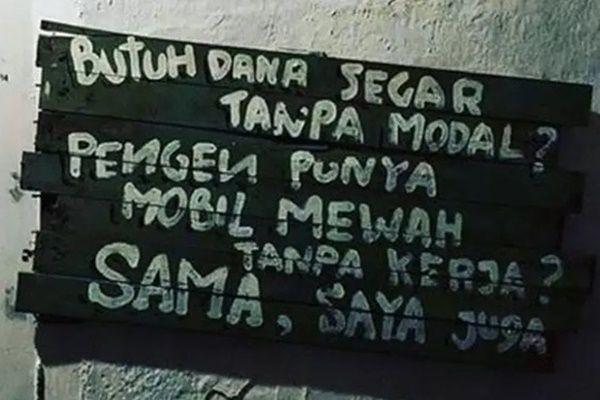 BUTUH DANA SEGAR
TANPA MODAL?
PENGEN PUNYA
MOBIL MEWAH
TANPA KERJA?
SAMA, SAYA JUGA